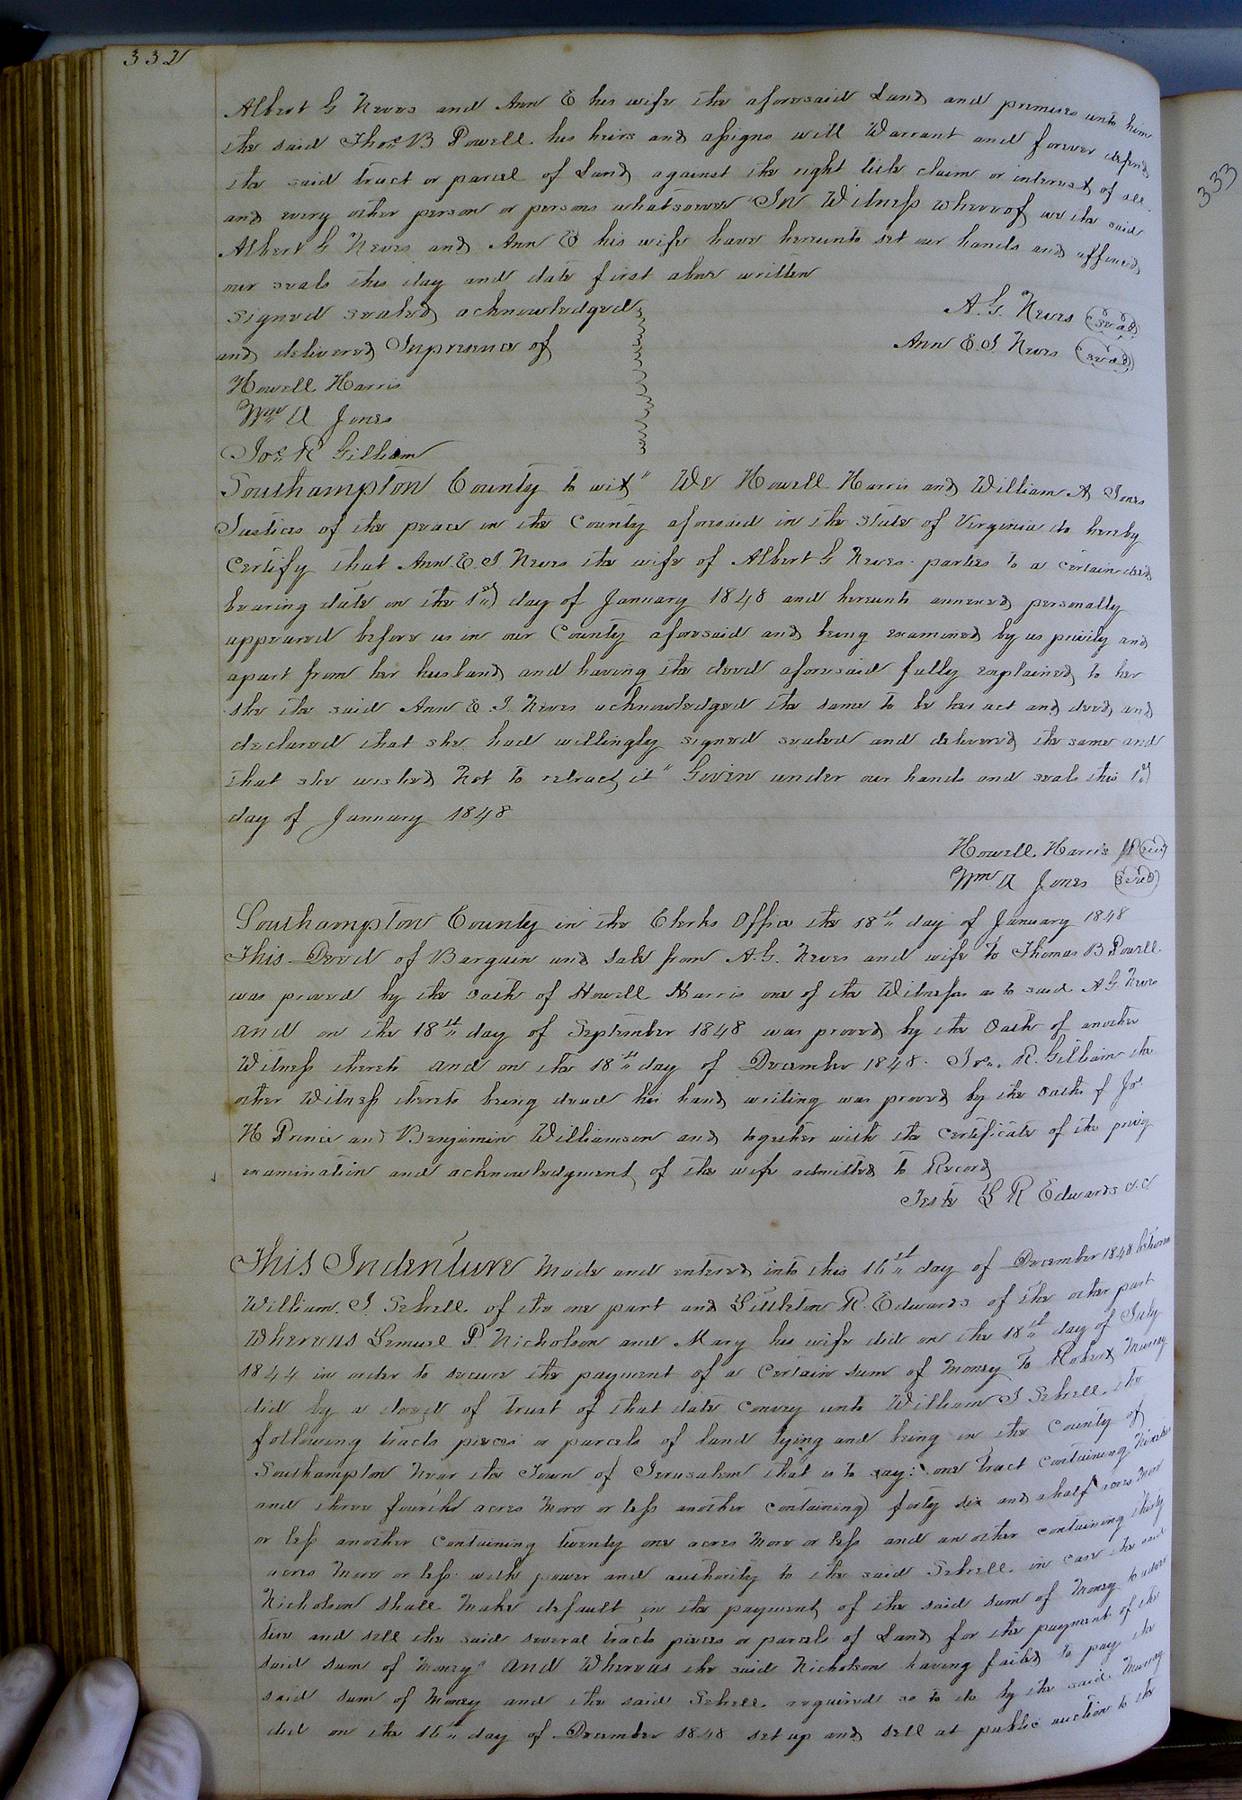 332
Albert G Neves and Ann E his wife the aforesaid Land and premises unto him
the said Thos B Powell his heirs and assigns will Warrant and forever defend
the said tract or parcel of Land against the right title claim or interest of all
and every other person or persons whatsoever In Witness whereof we the said
Albert G Neves and Ann E his wife have hereunto set our hands and affixed
our seals this day and date first above written
Signed sealed acknowledged
and delivered Inpresence of
A. G. Neves (seal)
Ann E. S. Neves (seal)
Howell Harris
Wm A Jones
Jos R Gilliam
Southampton County to wit" We Howell Harris and William A Jones
Justices of the peace in the County aforesaid in the State of Virginia do hereby
Certify that Ann E. S. Neves the wife of Albert G Neves parties to a certain deed
bearing date on the 1st day of January 1848 and hereunto annexed personally
appeared before us in our County aforesaid and being examined by us privily and
apart from her husband and having the deed aforesaid fully explained to her
she the said Ann E S. Neves acknowledged the same to be her act and deed and
declared that she had willingly signed sealed and delivered the same and
that she wished Not to retract it" Given under our hands and seals this 1st
day of January 1848
Howell Harris JP (seal)
Wm A Jones (seal)
Southampton County in the Clerks Office the 18th day of January 1848
This Deed of Bargain and Sale from A. G. Neves and wife to Thomas B Powell
was proved by the Oath of Howell Harris one of the Witnesses as to said A G Neves
and on the 18th day of September 1848 was proved by the Oath of another
Witness thereto and on the 18th day of December 1848. Jos. R. Gilliam the
other Witness thereto being dead his hand writing was proved by the oaths of Jos.
H Prince and Benjamin Williamson and together with the certificate of the privy
examination and acknowledgment of the wife admitted to Record
Teste L R Edwards c.c
This Indenture Made and entered into this 16th day of December 1848 between
William. S. Sebrell of the one part and Littleton R. Edwards of the other part
Whereas Lemuel P. Nicholson and Mary his wife did on the 18th day of July
1844 in order to secure the payment of a certain sum of money To Robert Murray
did by a deed of trust of that date convey unto William S Sebrell the
following tracts pieces or parcels of land lying and being in the County of
Southampton Near the Town of Jerusalem that is to say: one tract containing
and three fourths acres more or less another containing forty six and a half acres more
or less another containing twenty one acres more or less and an other containing thirty
acres more or less with power and authority to the said Sebrell in case the said
Nicholson shall Make default in the payment of the said sum of Money to adver
tise and sell the said several tracts pieces or parcels of Land for the payment of the
said sum of Money" and Whereas the said Nicholson having failed to pay the
said sum of Money and the said Sebrell required so to do by the said Murray
did on the 16th day of December 1848 set up and sell at public auction to the
333